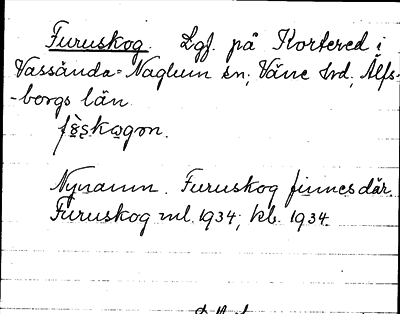 Furuskog. Lgf. på Kortered i
Vassända-Naglum sn; Väne hrd; Älfs-
-borgs län.
Nynamn. Furuskog finnes där.
Furuskog ml. 1934; kb. 1934.